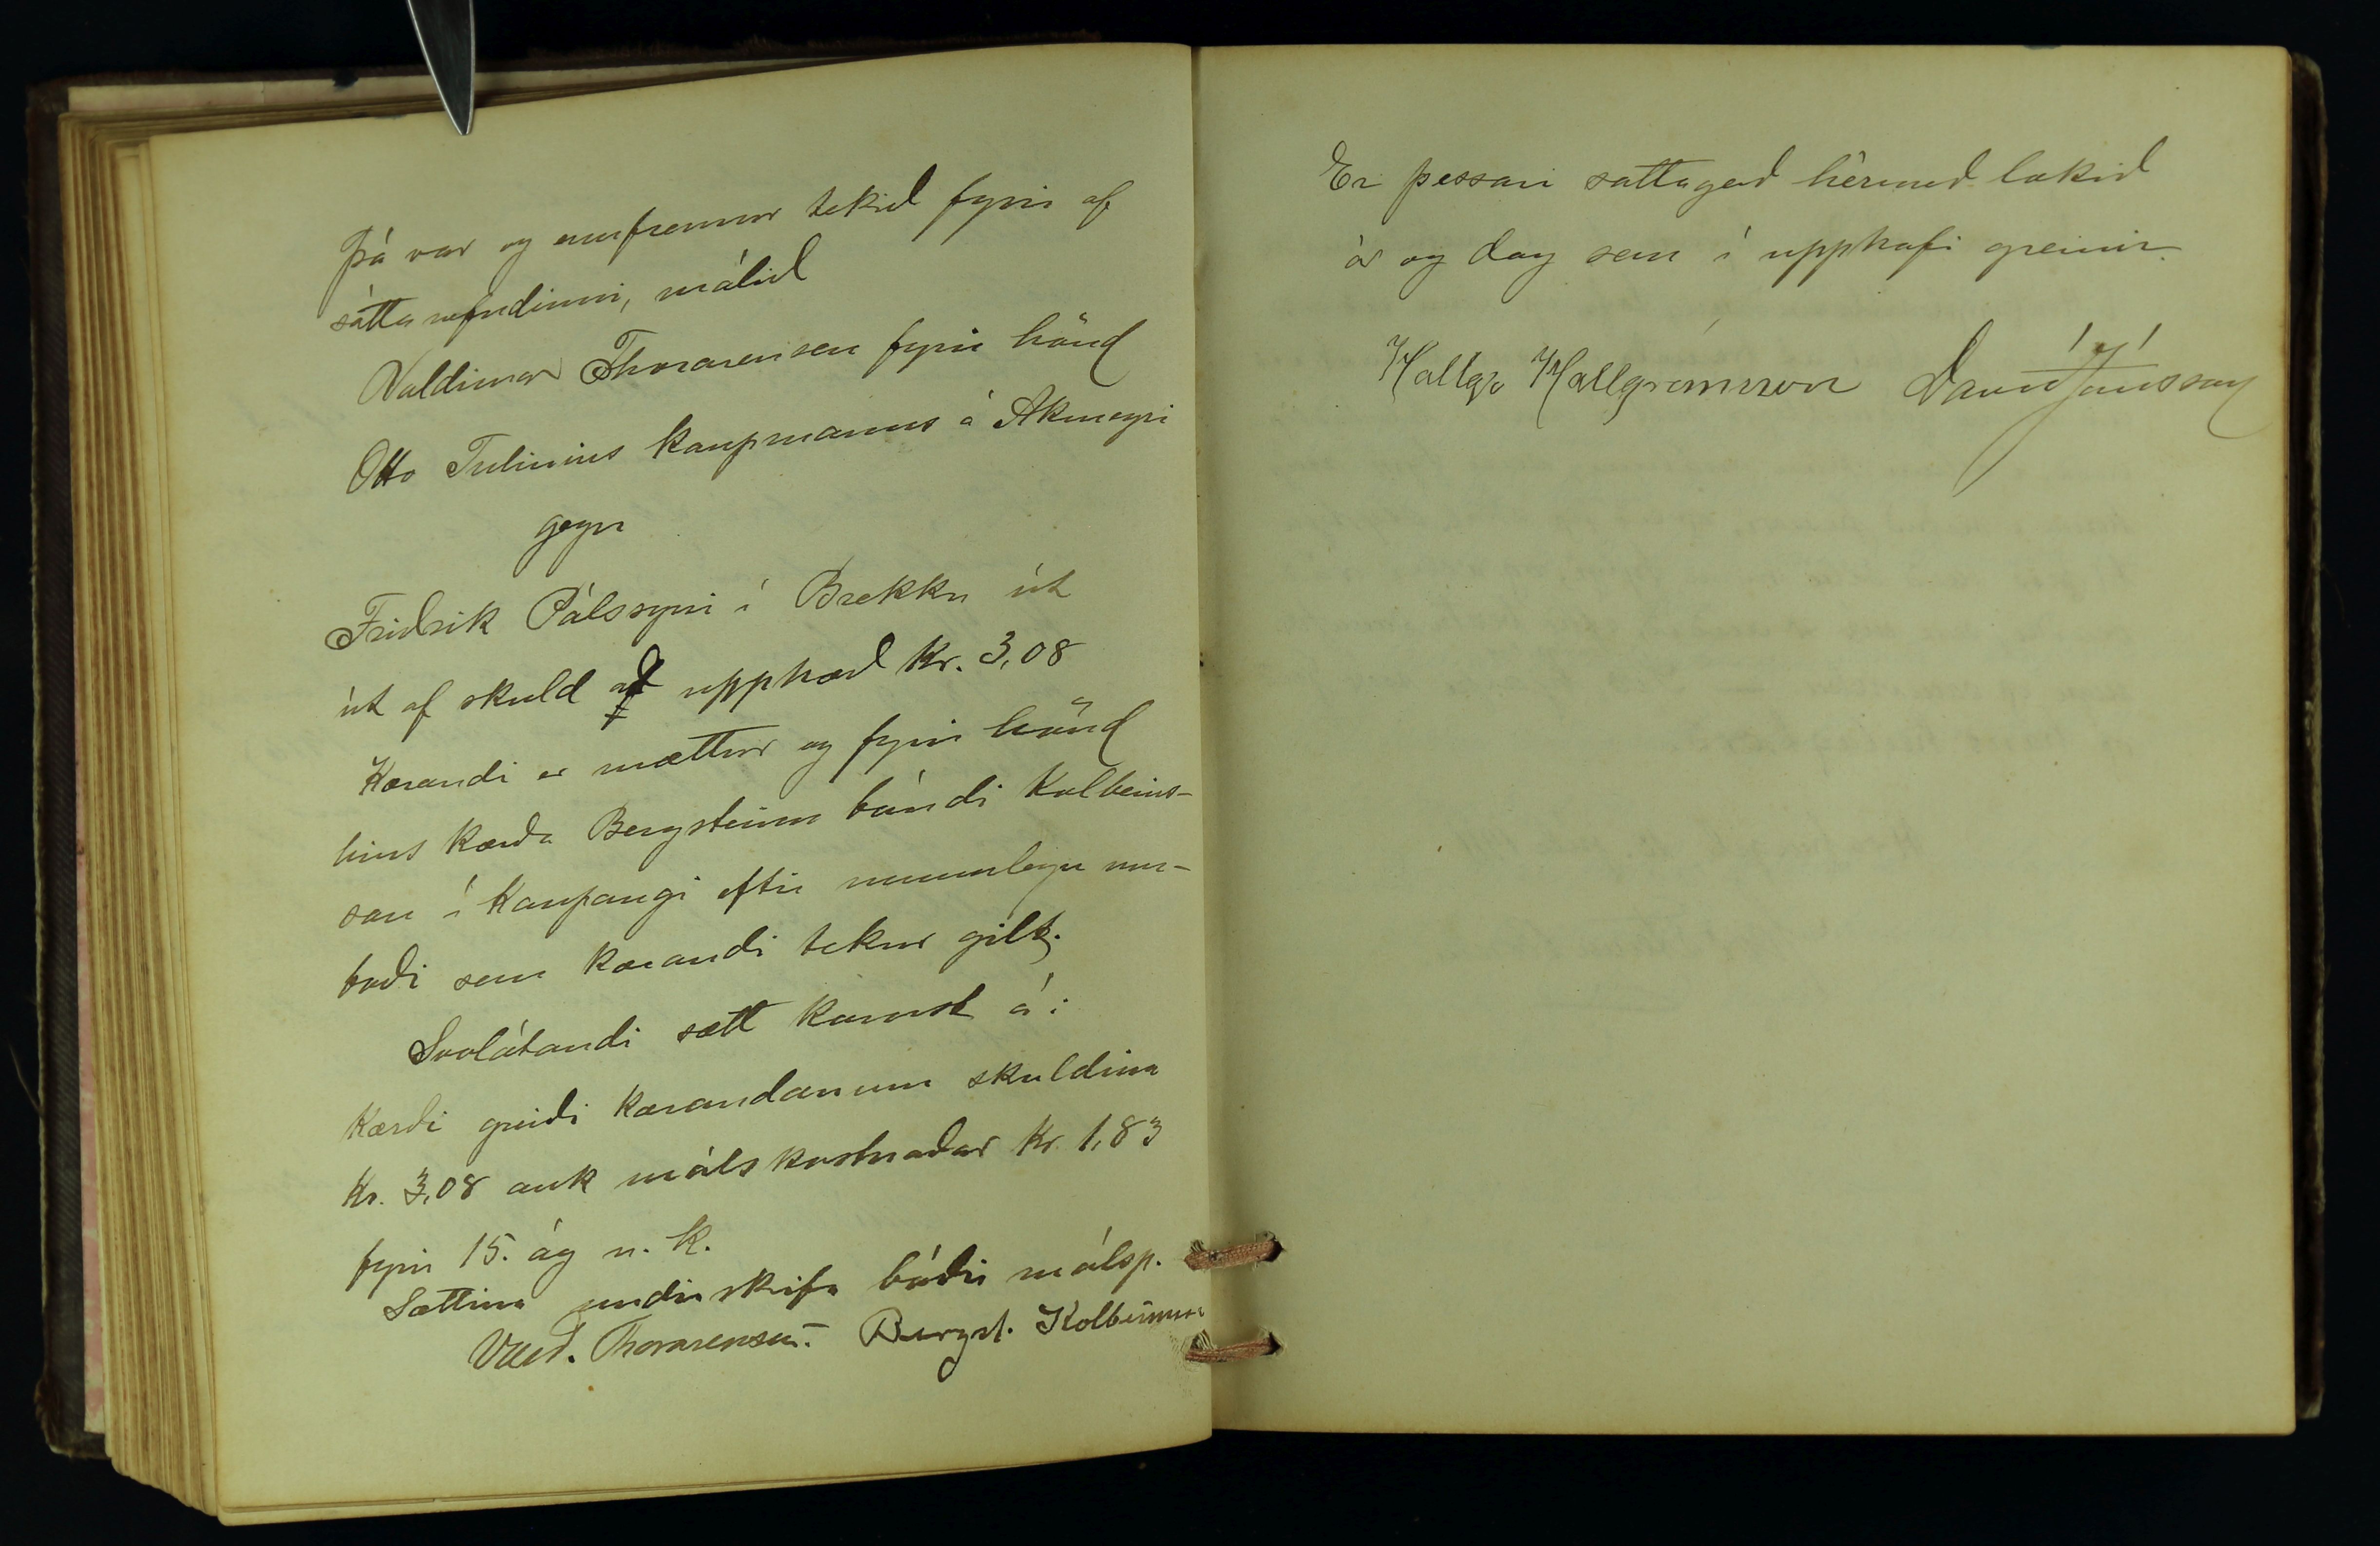 Þá var og ennfremur tekið fyrir af
sáttanefndinni, málið
Valdimar Thorarensen fyrir hönd
Otto Tulinius kaupmanns á Akureyri
gegn
Friðrik Pálssyni í Brekku út
út af skuld að upphæð Kr. 3,08
Kærandi er mættur og fyrir hönd
hins kærða Bergsteinn bóndi Kolbeins-
son í Kaupangi eftir munnlegu um-
boði sem kærandi tekur gilt.
Svolátandi sætt komst á:
Kærði greiði kærandanum skuldina
Kr. 3,08 auk málskostnaðar Kr. 1,83
fyrir 15. ág n. k.
Sættina undirskrifa báðir málsp.
Vald. Thorarensen. Bergst. Kolbeinsson
Er þessari sáttagerð hérmeð lokið
ár og dag sem í upphafi greinir.
Hallgr Hallgrímsson Davíð Jónsson